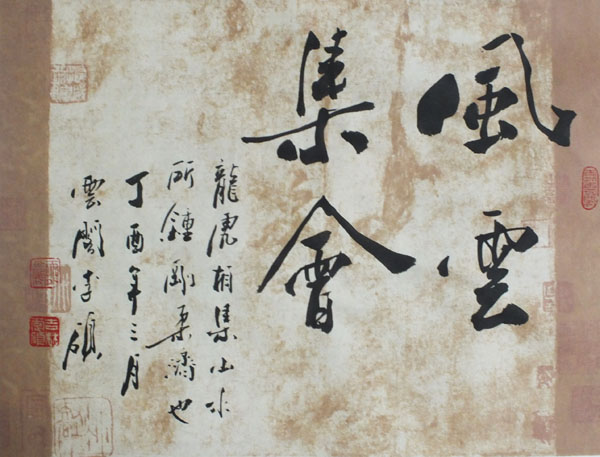 風雲
集會
龍虎相集山水
所鍾剛柔濟也
丁酉年三月
雲閣李碩